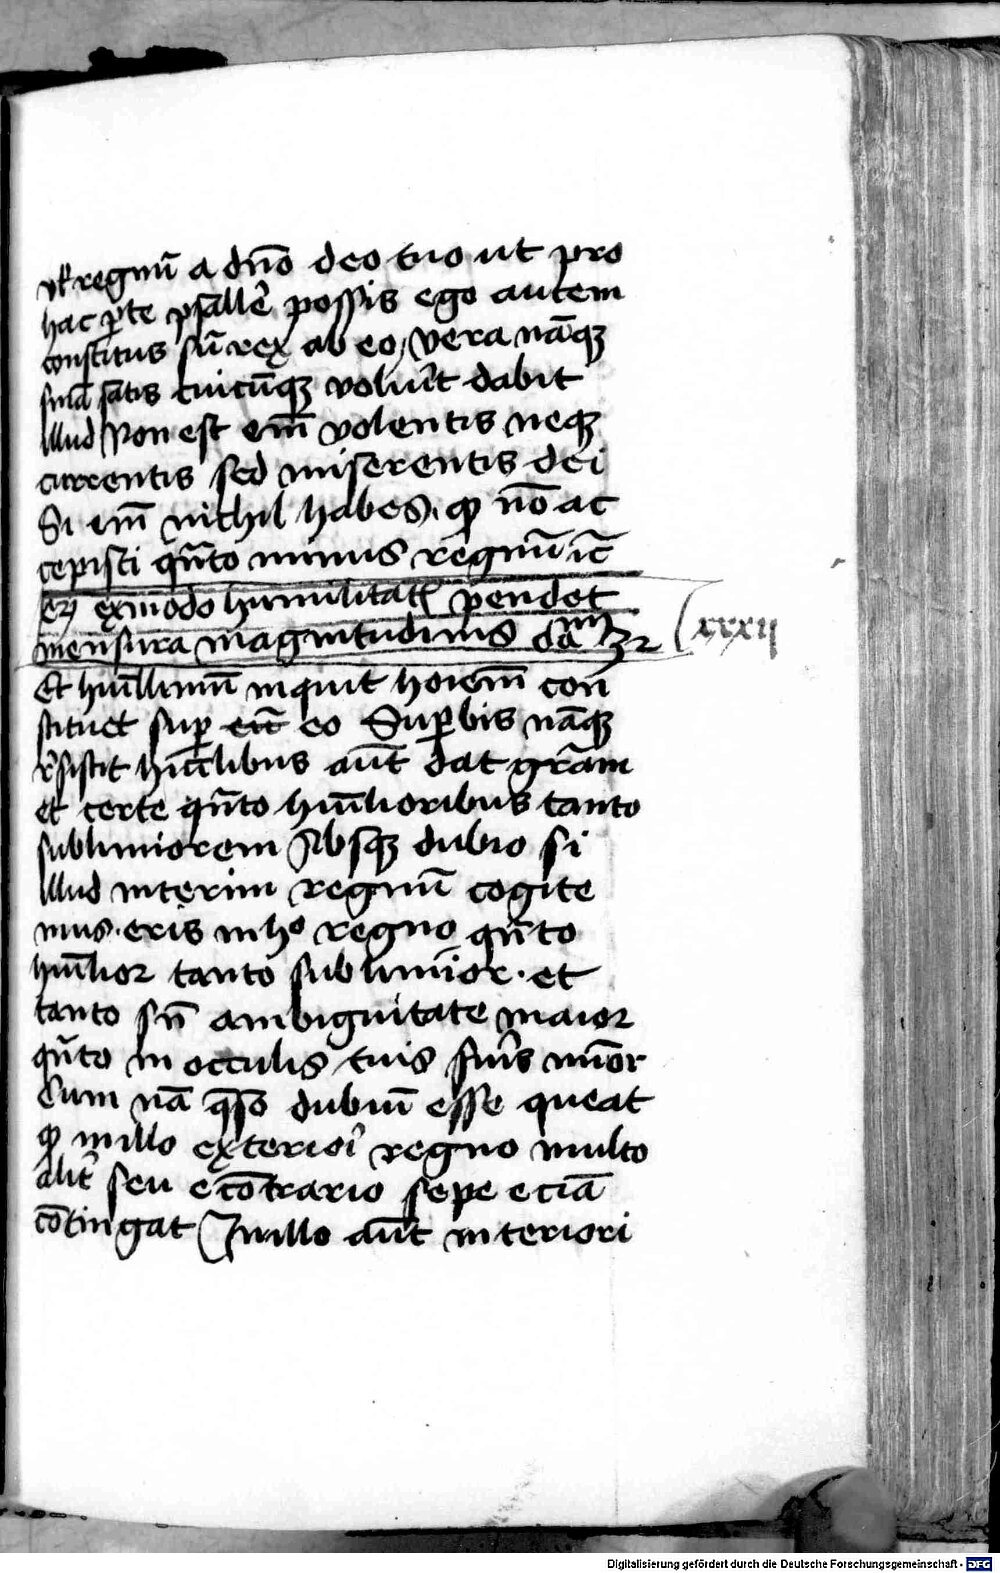 vl regnū a dn̄o deo tuo ut pro
hac pte psallē possis ego autem
constitus sū rex ab eo vera nāqꝫ
suā satis cuicūqꝫ voluīt dabit
illud Non est em̄ volentis neqꝫ
currentis sed miserentis dei
Si em̄ nichil habes qꝫ nō ac
cepisti qn̄to minus regnū
ex modo humilitat pendet
mensura magnitudinis
xxxii
Et huīllimū inquit hoiem̄ con
stituet sup eū eo Supbis nāqꝫ
resistit huīlibus aūt dat grām
et certe qn̄to huīlioribus tanto
sublimiorem Absqꝫ dubio si
illud interim regnū cogite
mus · eris in hº regno qn̄to
huīlior tanto sublimior · et
tanto sn̄ ambiguitate maior
qn̄to in occulis tuis fuīs minor
Cum nā qso dubiū esse queat
qꝫ in illo exteriori regno multo
alit seu econtrario sepe eciā
cōtingat In illo aūt interiori
Digitalisierung gefördert durch die Deutsche Forschungsgemeinschaft - DFG